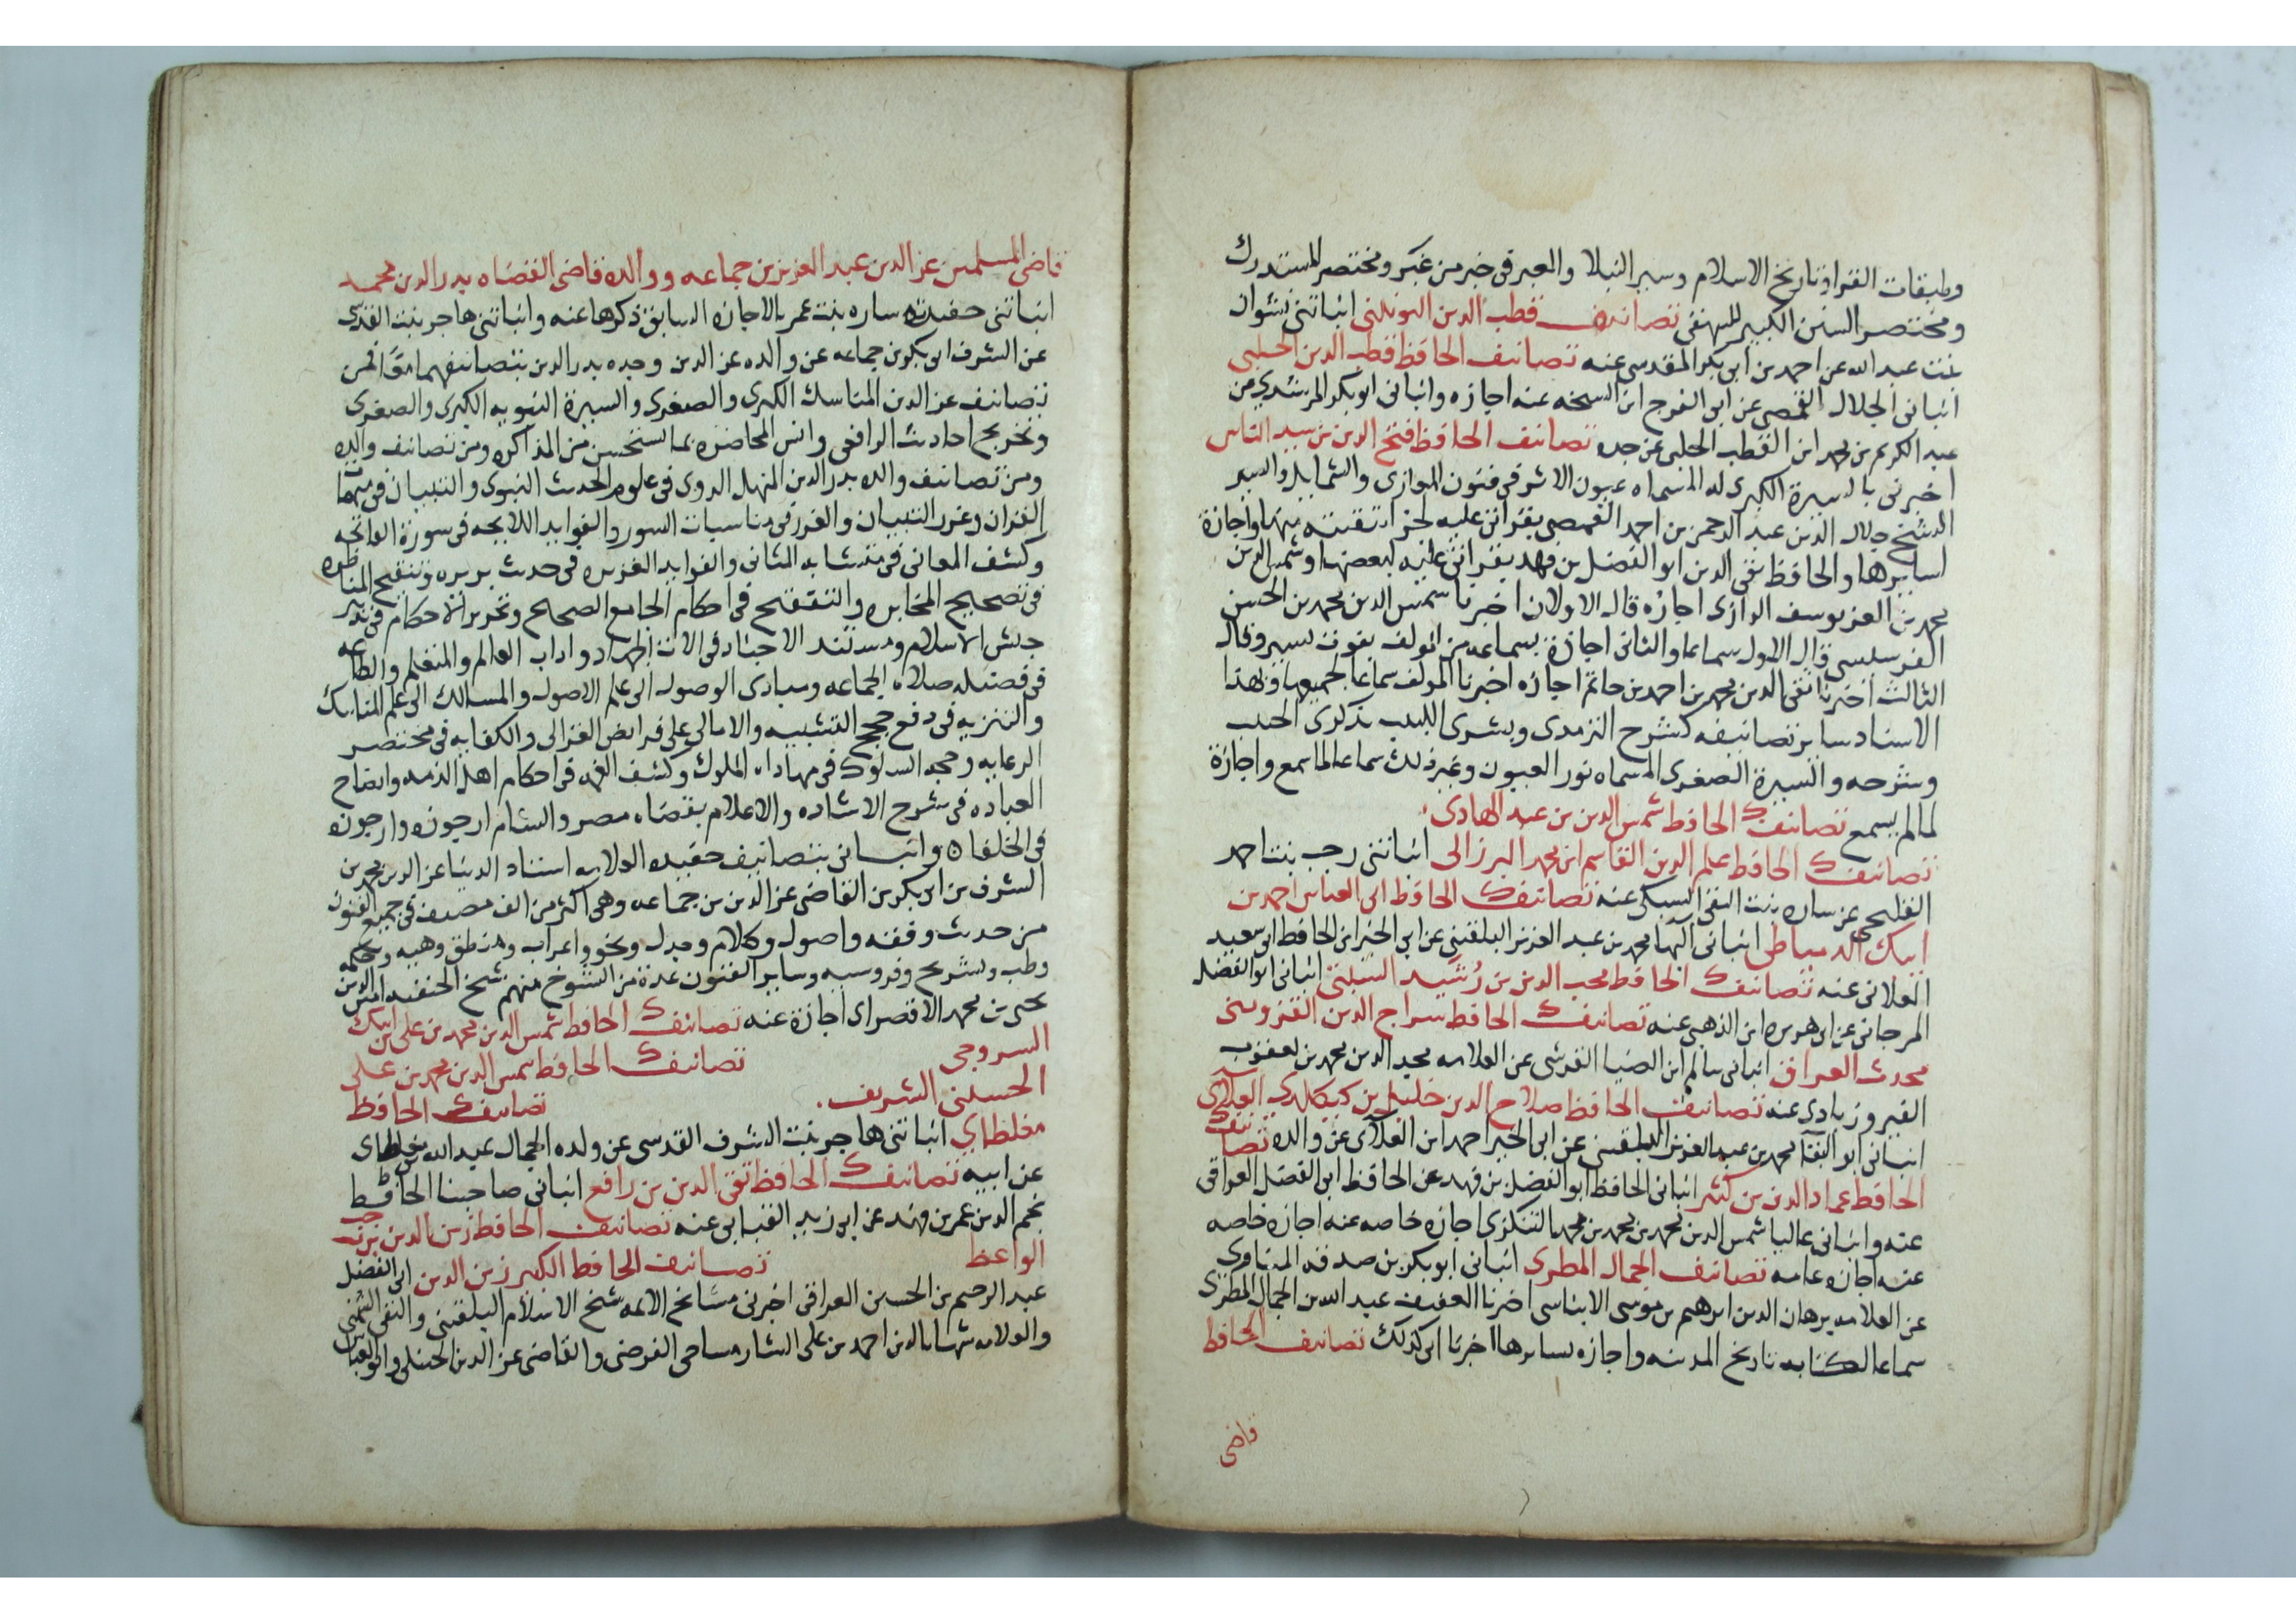 وطبقات القرا وتاريخ الاسلام وسير النبلا والعبر فى خبر من غبر ومختصر المستدرك
ومختصر السنن الكبير للبيهقى تصانيف قطب الدين اليونينى انباتنى نشوان
بنت عبد الله عن احمد بن ابى بكر المقدسى عنه تصانيف الحافظ قطب الدين الحلبى
انبانى الجلال القمصى عن ابى الفرج ابن الشيخه عنه اجازه وانبانى ابو بكر المرشدى عن
عبد الكريم بن محمد ابن القطب الحلبى عن جده تصانيف الحافظ فتح الدين بن سيد الناس
اخبرنى بالسيرة الكبرى له المسماه عيون الاثر فى فنون المغازى والشمايل والسير
الشيخ جلال الدين عبد الرحمن بن احمد القمصى بقراتى عليه لجز انتقيته منها واجازة
لسايرها والحافظ تقى الدين ابو الفضل بن فهد بقراتى عليه لبعضها وشمس الدين
محمد بن العز يوسف الرازى اجازه قال الاولان اخبرنا شمس الدين محمد بن الحسن
الفرسيسى قال الاول سماعا والثانى اجازة بسماعه من المولف بفوت يسير وقال
الثالث اخبرنا تقى الدين محمد بن احمد بن حاتم اجازه اخبرنا المولف سماعا لجميعها وبهذا
الاسناد ساير تصانيفه كشرح الترمدى وبشرى اللبيب بذكرى الحبيب
وشرحه والسيرة الصغرى المسماه نور العيون وغير ذلك سماعا لما سمع واجازة
لما لم يسمع تصانيف الحافظ شمس الدين بن عبد الهادى
تصانيف الحافظ علم الدين القاسم ابن محمد البرزالى انباتنى رجب بنت احمد
القليجى عن ساره بنت التقى السبكى عنه تصانيف الحافظ ابى العباس احمد بن
ايبك الدمياطى انبانى البها محمد بن عبد العزيز البلقينى عن ابى الخير ابن الحافظ ابى سعيد
العلائى عنه تصانيف الحافظ محب الدين بن رشيد السبتى انبانى ابو الفضل
المرجانى عن ابى هريره ابن الذهبى عنه تصانيف الحافظ سراج الدين القزوينى
محدث العراق انبانى سالم ابن الضيا القرشى عن العلامه مجد الدين محمد بن يعقوب
الفيروزبادى عنه تصانيف الحافظ صلاح الدين خليل بن كيكلدى العلائى
انبانى ابو البقا محمد بن عبد العزيز البلقينى عن ابى الخير احمد ابن العلائى عن والده تصانيف
الحافظ عماد الدين بن كثير انبانى الحافظ ابو الفضل بن فهد عن الحافظ ابى الفضل العراقى
عنه وانبانى عاليا شمس الدين محمد بن محمد بن محمد التنكزى اجازه خاصه عنه اجازه خاصه
عنه اجازه عامه تصانيف الجمال المطرى انبانى ابو بكر بن صدقه المناوى
عن العلامه برهان الدين ابرهيم بن موسى الابناسى اخبرنا العفيف عبد الله بن الجمال المطرى
سماعا لكتابه تاريخ المدينه واجازه لسايرها اخبرنا ابى كذلك تصانيف الحافظ
قاضى
قاضى المسلمين عز الدين عبد العزيز بن جماعه ووالده قاضى القضاه بدر الدين محمد
انباتنى حفيدته ساره بنت عمر بالاجازه السابق ذكرها عنه وانباتنى هاجر بنت القدسى
عن الشرف ابى بكر بن جماعه عن والده عز الدين وجده بدر الدين بتصانيفهما فمن
تصانيف عز الدين المناسك الكبرى والصغرى والسيرة النبويه الكبرى والصغرى
وتخريج احاديث الرافعى وانس المحاضره بما يستحسن من المذاكره ومن تصانيف والده
ومن تصانيف والده بدر الدين المنهل الروى فى علوم الحديث النبوى والتبيان فى مبهمات
القران وغرر التبيان والغرر فى مناسبات السور والفوايد اللايحه فى سورة الفاتحه
وكشف المعانى فى متشابه المثانى والفوايد الغزيره فى حديث بريره وتنقيح المناظره
فى تصحيح المخابره والتنقيح فى احكام الجامع الصحيح وتحرير الاحكام فى تدبير
جيش الاسلام ومستند الاجناد فى الات الجهاد واداب العالم والمتعلم والطاعه
فى فضيله صلاه الجماعه ومبادى الوصول الى علم الاصول والمسالك الى علم المناسك
والتنزيه فى دفع حجج التشبيه والامالى على فرايض الغزالى والكفايه فى مختصر
الرعايه وحجه السلوك فى مهاداه الملوك وكشف الغمه فى احكام اهل الذمه وايضاح
العباده فى شرح الاشاده والاعلام بقضاه مصر والشام ارجوزه وارجوزه
فى الخلفاه وانبانى بتصانيف حفيده العلامه استاد الدنيا عز الدين محمد بن
الشرف بن ابى بكر بن القاضى عز الدين بن جماعه وهى اكثر من الف مصنف فى جميع الفنون
من حديث وفقه واصول وكلام وجدل ونحو واعراب ومنطق وهيه وحكمه
وطب وتشريح وفروسيه وساير الفنون عدة من الشيوخ منهم شيخ الحنفيه امين الدين
يحيى بن محمد الاقصراى اجازة عنه تصانيف الحافظ شمس الدين محمد بن على بن ايبك
السروجى تصانيف الحافظ شمس الدين محمد بن على
الحسينى الشريف . تصانيف الحافظ
مغلطاي انباتنى هاجر بنت الشرف القدسى عن ولده الجمال عبد الله بن مغلطاى
عن ابيه تصانيف الحافظ تقى الدين بن رافع انبانى صاحبنا الحافظ
نجم الدين عمر بن فهد عن ابى زيد القبابى عنه تصانيف الحافظ زين الدين بن رجب
الواعظ تصانيف الحافظ الكبير زين الدين ابى الفضل
عبد الرحيم بن الحسين العراقى اخبرنى مشايخ الايمه شيخ الاسلام البلقينى والتقى الشمنى
والعلامه شهاب الدين احمد بن على الشارمساحى الفرضى والقاضى عز الدين الحنبلى وابو العباس